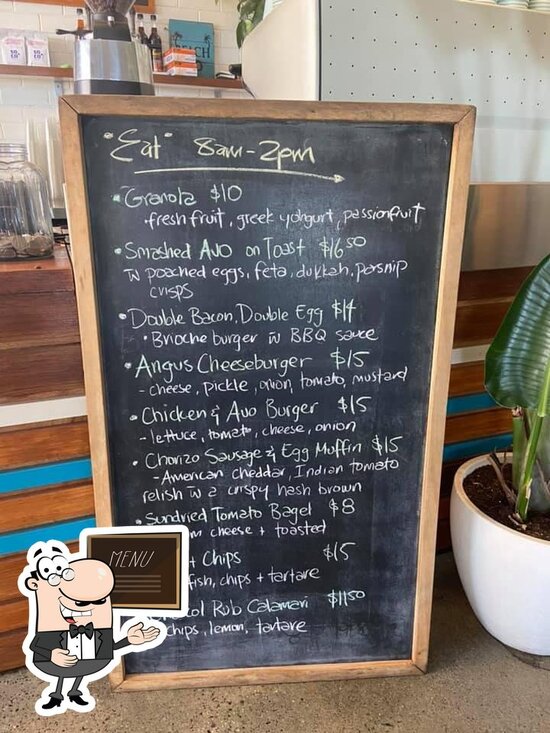 "Eat" 8am-2pm
• Granola $10
fresh fruit, greek yohgurt, passionfruit
• Smashed Avo on Toast $16.50
w poached eggs, feta, dukkah, parsnip
crisps
• Double Bacon, Double Egg $14
• Brioche burger w BBQ sauce
• Angus Cheeseburger $15
- cheese, pickle, onion, tomato, mustard
• Chicken & Avo Burger $15
- lettuce, tomato, cheese, onion
• Chorizo Sausage & Egg Muffin $15
- American cheddar, Indian tomato
relish w a crispy hash brown
• Sundried Tomato Bagel $8
cheese + toasted
+ Chips $15
fish, chips + tartare
Rob Calamari $11.50
chips, lemon, tartare
MENU